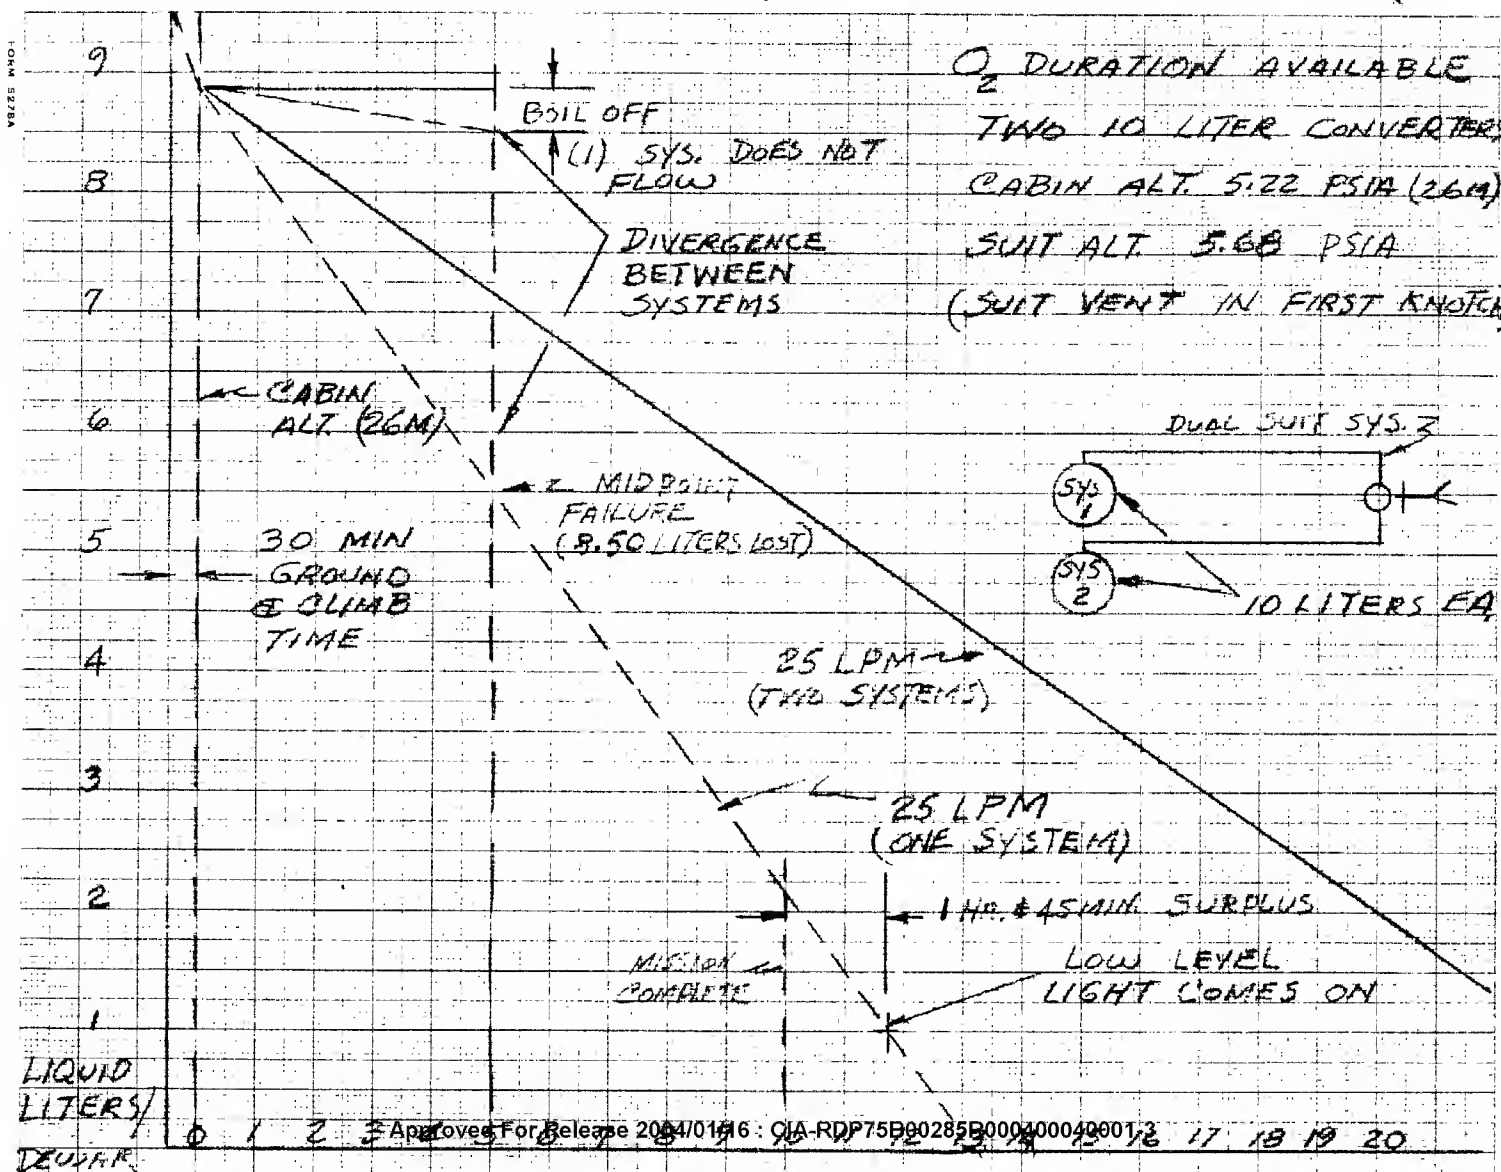 FORM 5278A
9
8
7
6
5
4
3
2
1
O2 DURATION AVAILABLE
TWO 10 LITER CONVERTERS
CABIN ALT. 5.22 PSIA (26M)
SUIT ALT. 5.68 PSIA
(SUIT VENT IN FIRST KNOTCH
BOIL OFF
(1) SYS. DOES NOT
FLOW
DIVERGENCE
BETWEEN
SYSTEMS
CABIN
ALT. (26M)
DUAL SUIT SYS.
SYS
1
SYS
2
10 LITERS EA
MIDPOINT
FAILURE
(8.50 LITERS LOST)
30 MIN
GROUND
& CLIMB
TIME
25 LPM
(TWO SYSTEMS)
25 LPM
(ONE SYSTEM)
1 HR. & 45 MIN. SURPLUS
MISSION
COMPLETE
LOW LEVEL
LIGHT COMES ON
LIQUID
LITERS/
DEWAR
0 1 2 3 4 5 6 7 8 9 10 11 12 13 14 15 16 17 18 19 20
Approved For Release 2004/01/16 : CIA-RDP75B00285R000400040001-3